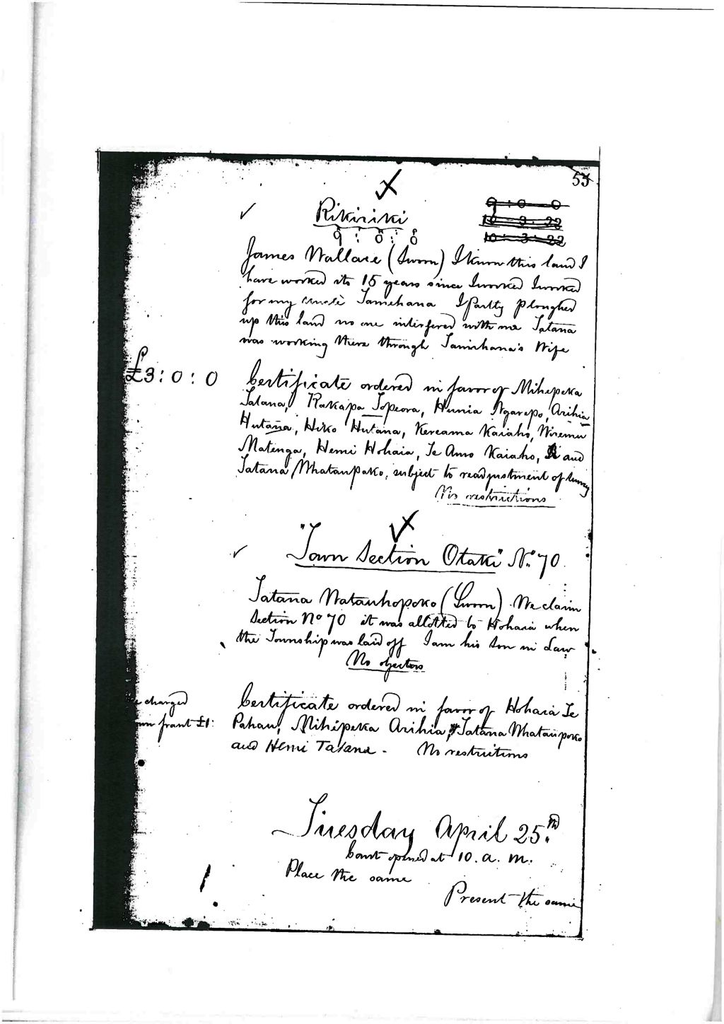 53
✓ Rikiriki
9 : 0 : 0
10 . 3 . 32
10 . 3 . 32
9 : 0 : 0
James Wallace (Sworn) I know this land I
have worked its 15 years since I worked I worked
for my uncle Tamihana I partly ploughed
up this land no one interfered with me Tatana
was working there through Tamihana's Wife
£3 : 0 : 0 Certificate ordered in favor of Mihepeka
Tatana, Rakapa Topeora, Hunia Ngarepo, Arihia
Hutana, Hiko Hutana, Kereama Kaiaho, Wiremu
Matenga, Hemi Hohaia, Te Amo Kaiaho, and
Tatana Whataupoko, subject to readjustment of survey
No restrictions
✓ "Town Section Otaki" No 70
Tatana Watauhopoko (Sworn) We claim
Section No 70 it was allotted to Hohaia when
the Township was laid off I am his Son in Law
No objectors
charged Certificate ordered in favor of Hohaia Te
grant £1: Pahau, Mihipeka Arihia, & Tatana Whataupoko
and Hemi Tatana - No restrictions
Tuesday April 25th
Court opened at 10. a. m.
Place the same
Present the same